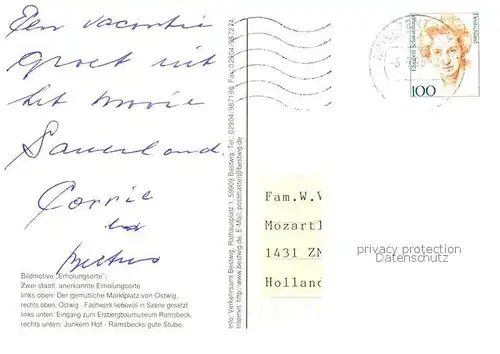 Een vacantie
groet uit
het mooie
Sauerland.
Corrie
Bildmotive "Erholungsorte":
Zwei staatl. anerkannte Erholungsorte
links oben: Der gemütliche Marktplatz von Ostwig,
rechts oben: Ostwig - Fachwerk liebevoll in Szene gesetzt
links unten: Eingang zum Erzbergbaumuseum Ramsbeck,
rechts unten: Junkern Hof - Ramsbecks gute Stube.
Info: Verkehrsamt Bestwig, Rathausplatz 1, 59909 Bestwig, Tel.: 02904/987166 Fax: 02904/987274
Internet: http://www.bestwig.de, E-Mail: postmaster@bestwig.de
Deutschland
100
Fam.W.V
Mozartl
1431 ZM
Holland
privacy protection
Datenschutz